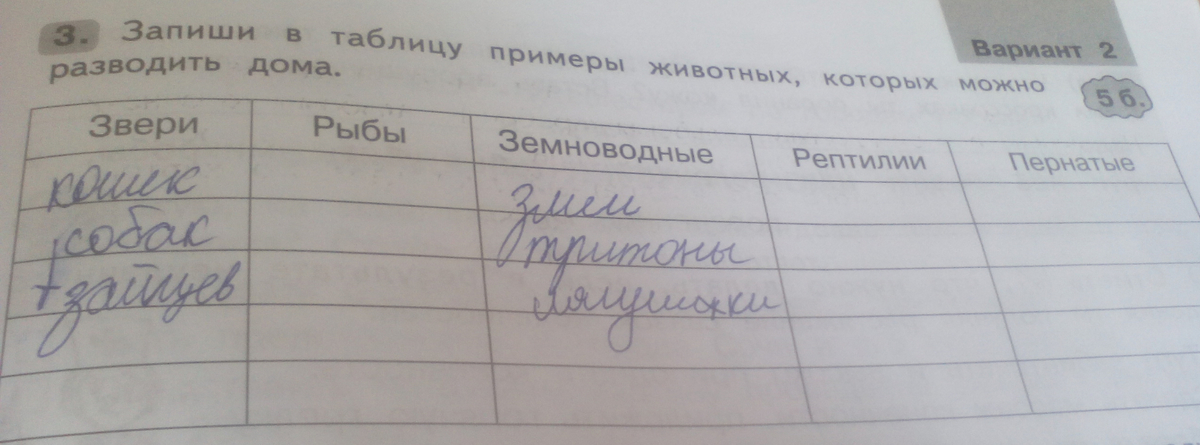 3. Запиши в таблицу примеры животных, которых можно
разводить дома.
Вариант 2
5 б.
Звери Рыбы Земноводные Рептилии Пернатые
кошек змеи
собак тритоны
зайцев лягушки